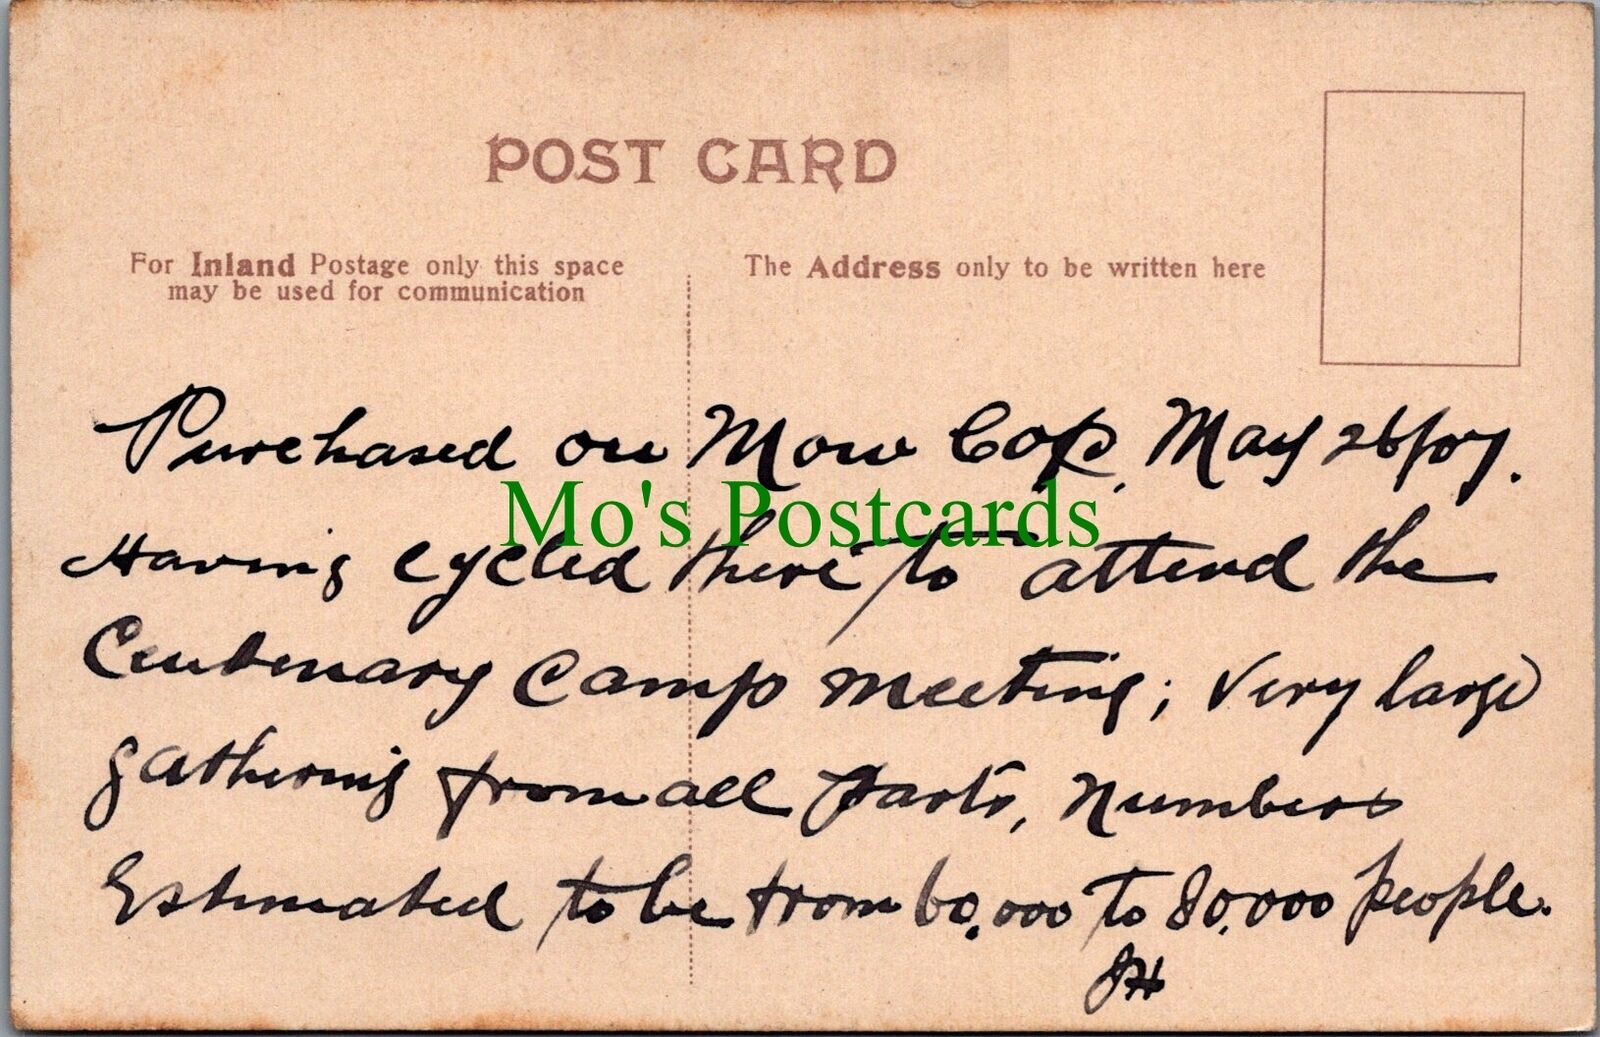 POST CARD
For Inland Postage only this space
may be used for communication
The Address only to be written here
Purchased on Mow Cop, May 26/07.
Mo's Postcards
Having cycled there to attend the
Centenary Camp meeting; Very large
gathering from all parts, Numbers
Estimated to be from 60,000 to 80,000 people.
JH